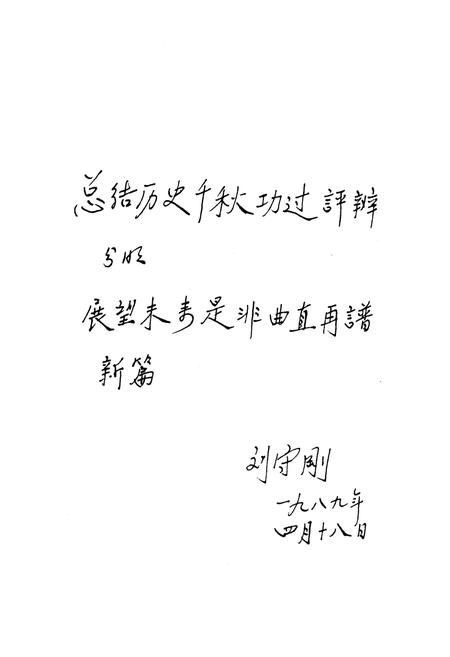 总结历史千秋功过評辨
分明
展望未来是非曲直再譜
新篇
刘守刚
一九八九年
四月十八日